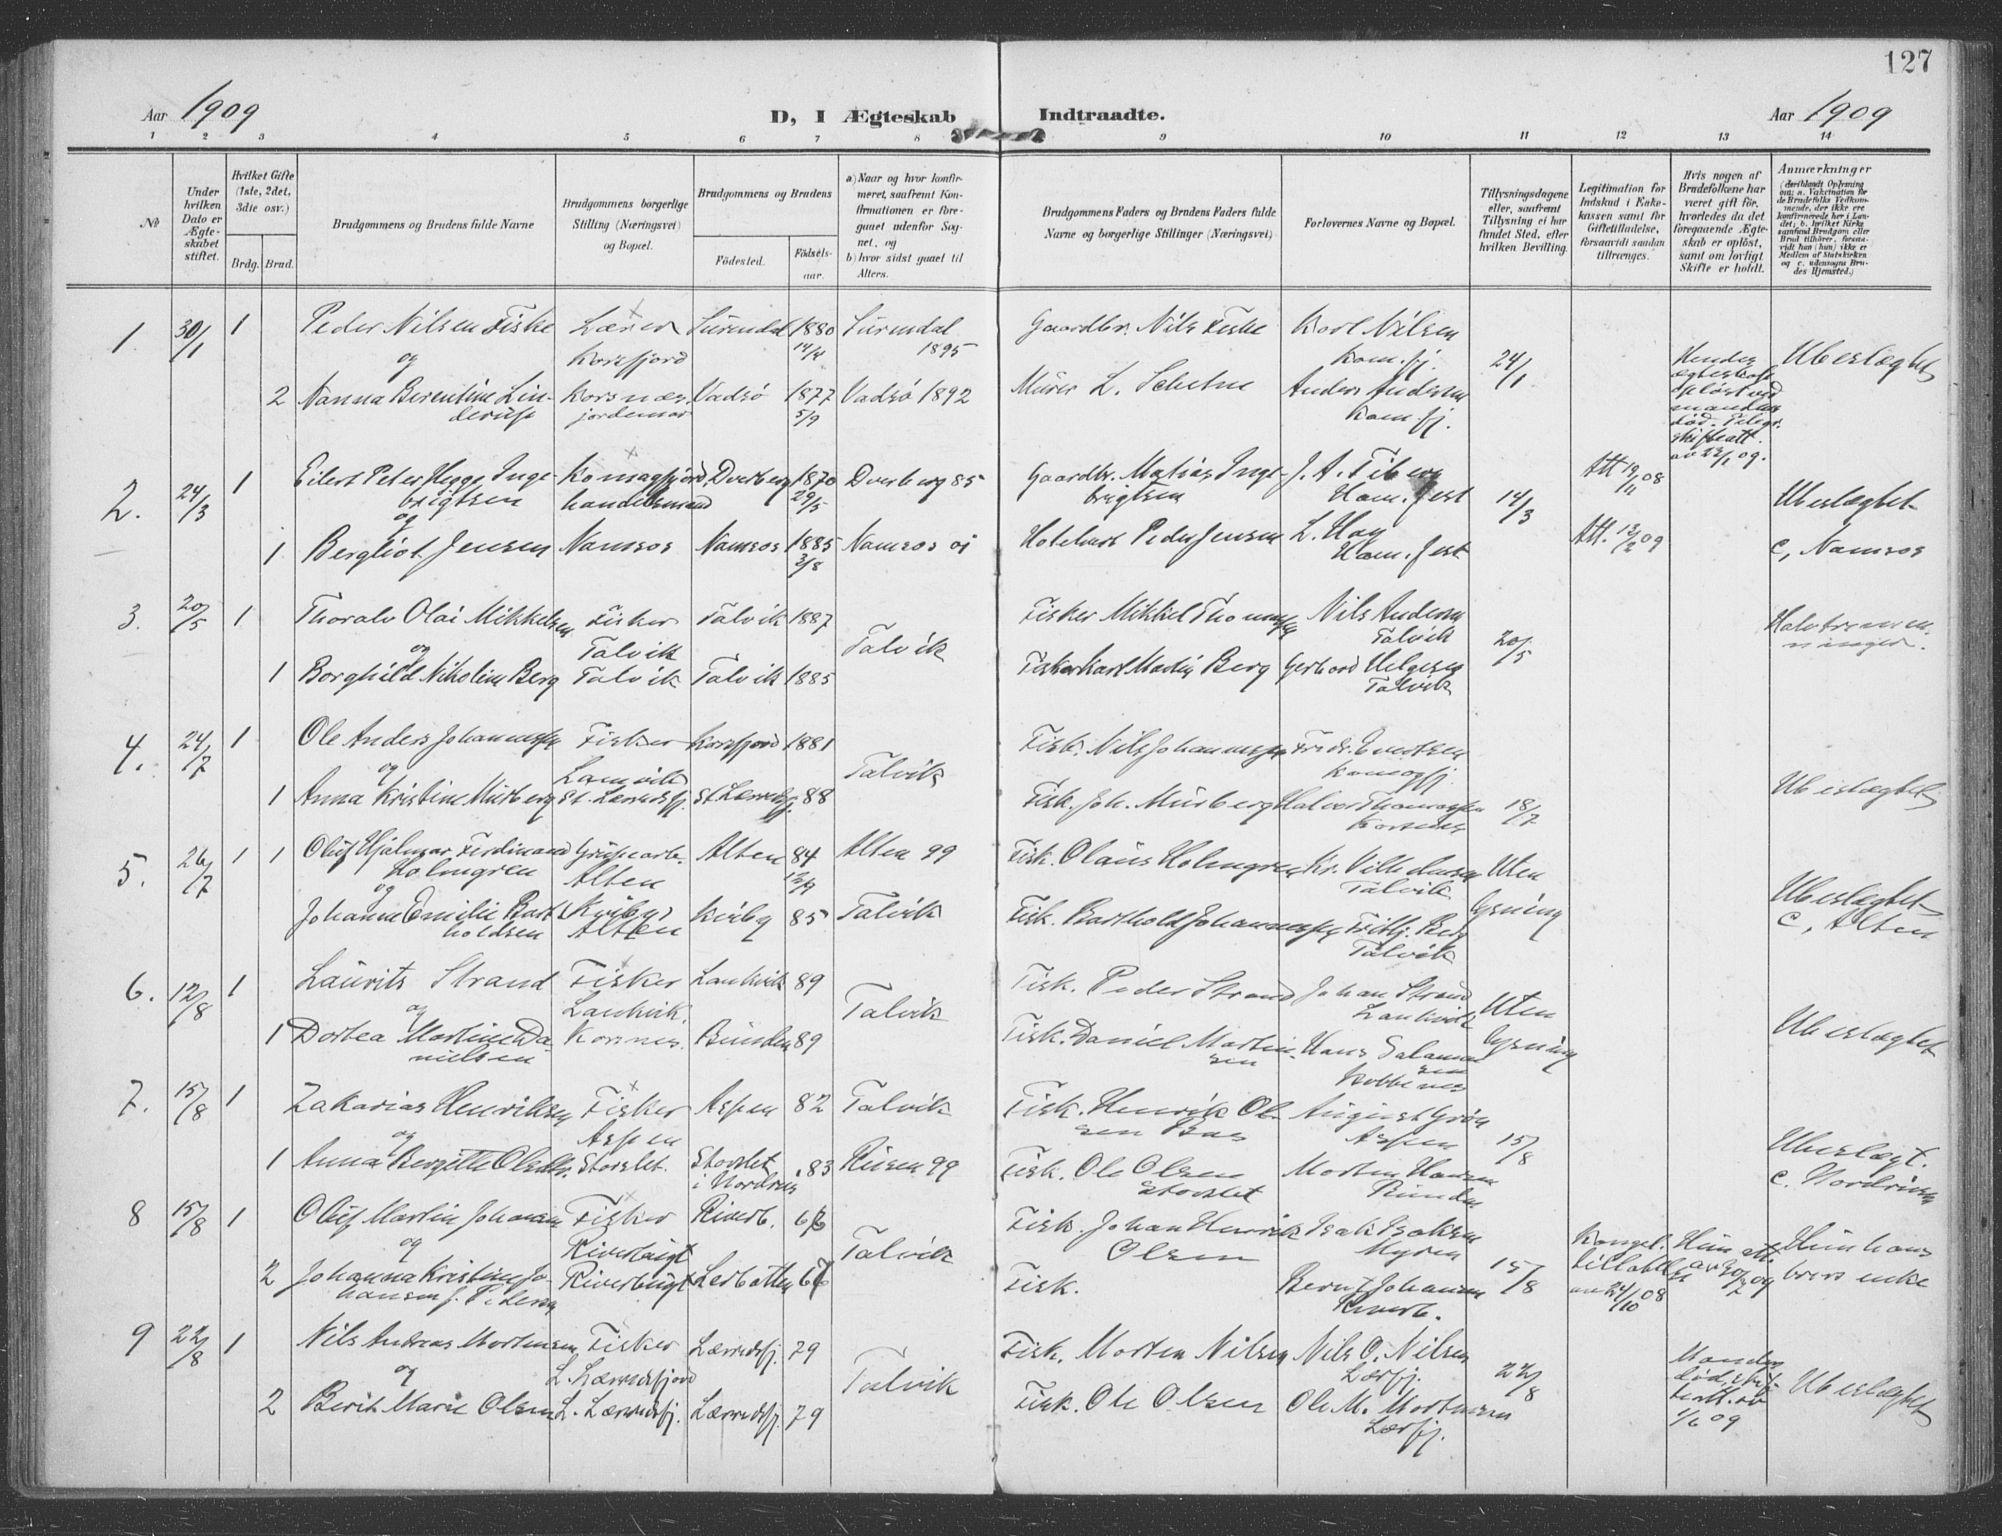 127
Aar 1909
D, I Ægteskab Indtraadte.
Aar 1909
1 2 3 4 5 6 7 8 9 10 11 12 13 14
No
Under hvilken Dato er Ægteskabet stiftet.
Hvilket Gifte (1ste, 2det, 3die osv.)
Brdg. Brud.
Brudgommens og Brudens fulde Navne
Brudgommens borgerlige Stilling (Næringsvei) og Bopæl.
Brudgommens og Brudens
Fødested.
Fødsels-aar.
a) Naar og hvor konfirmeret, saafremt Konfirmationen er foregaaet udenfor Sognet, og
b) hvor sidst gaaet til Alters.
Brudgommens Faders og Brudens Faders fulde Navne og borgerlige Stillinger (Næringsvei)
Forlovernes Navne og Bopæl.
Tillysningsdagene eller, saafremt Tillysning ei har fundet Sted, efter hvilken Bevilling.
Legitimation for Indskud i Enkekassen samt for Giftetilladelse, forsaavidt saadan tiltrænges.
Hvis nogen af Brudefolkene har været gift før, hvorledes da det foregaaende Ægteskab er opløst, samt om lovligt Skifte er holdt.
Anmærkninger
1. 30/1 1 Peder Nilsen Fiske Lærer Surendal 1880 Surendal Gaardbr. Nils Fiske Karl Nilsen
og Korsfjord 14/4 1895 Kom.fj. 24/1 Ubeslægtet
2 Nanna Berentine Lin- Korsnæs Vadsø 1877 Vadsø 1892 Murer L. Anders Andersen
derup jordemor 5/9 Kom.fj.
2. 24/3 1 Eilert Peter Hegge Inge- Komagfjord Dverberg 1870 Dverberg 85 Gaardbr. Matias Inge- J. A. Fiberg Att 19/11 08
brigtsen handelsmand 29/5 brigtsen Ham.fest 14/3 Ubeslægtet
og
1 Bergliot Jensen Namsos Namsos 1885 Namsos 01 Peder Jensen L. Hay Att. 13/2 09 c, Namsos
3/8 Ham.fest
3. 20/5 1 Thoralv Olai Mikkelsen Fisker Talvik 1887 Fisker Mikkel Thomassen Nils Andersen
og Talvik Talvik Talvik 20/5
1 Borghild Nikoline Berg Talvik Talvik 1885 Fisker Karl Martin Berg Gerhard Helgesen
Talvik
4. 24/7 1 Ole Anders Johannessen Fisker Korsfjord 1881 Fisk. Nils Johannessen Fredr. Evertsen
og Talvik Komagfj.
1 Anna Kristine Murberg St. Lerredsfj. St Lerredsfj. 88 Fisk. Joh. Murberg Halvor Thomassen 18/7 Ubeslægtet
Korsnes
5. 26/7 1 1 Oluf Hjalmar Ferdinand Grubearb. Alten 84 Alten 99 Fisk. Olaus Holmgren Kr. Vilhelmsen Uten
Holmgren Alten 12/9 Talvik
og Ubeslægtet
Johanne Emilie Bart- Kviby Kviby 85 Talvik Fisk. Barthold Johannessen Fritj. Berg lysning c, Alten
holdsen Alten Talvik
6. 12/8 1 Laurits Strand Fisker 89 Fisk. Peder Strand Johan Strand Uten
og Talvik
1 Dortea Martine Da- Korsnes. 89 Fisk. Daniel Martin- Hans Salamon- lysning Ubeslægtet
nielsen sen sen
7. 15/8 1 Zakarias Henriksen Fisker Aspen 82 Talvik Fisk. Henrik Ol- August Grøn
og Aspen sen Bas Aspen 15/8 Ubeslægt.
1 Anna Bergitte Olsdtr. Storslet. Storslet 83 Fisk. Ole Olsen Morten Hansen c. Nordreisen
i Nordreis Storslet
8 15/8 1 Oluf Martin Johansen Fisker Riverb. 66 Fisk. Johan Henrik Isak Isaksen Kongel. Hun att. Hun hans
og Riverbugt Talvik Olsen Myren tilladelse av 20/2 09 brors enke
2 Johanna Kristine Jo- Riverbugt Lerbotten 67 Fisk. Bernt Johansen 15/8 av 24/10 08
hansen f. Pedersen Riverb.
9 22/8 1 Nils Andreas Mortensen Fisker Lerredsfj. 79 Fisk. Morten Nilsen Nils O. Nilsen
og L. Lerredsfjord Talvik Lerfj. 22/8
2 Berit Marie Olsen L. Lerredsfj. Lerredsfj. 79 Fisk. Ole Olsen Ole M. Mortensen 1/6 09 Ubeslægtet
Lerfj.